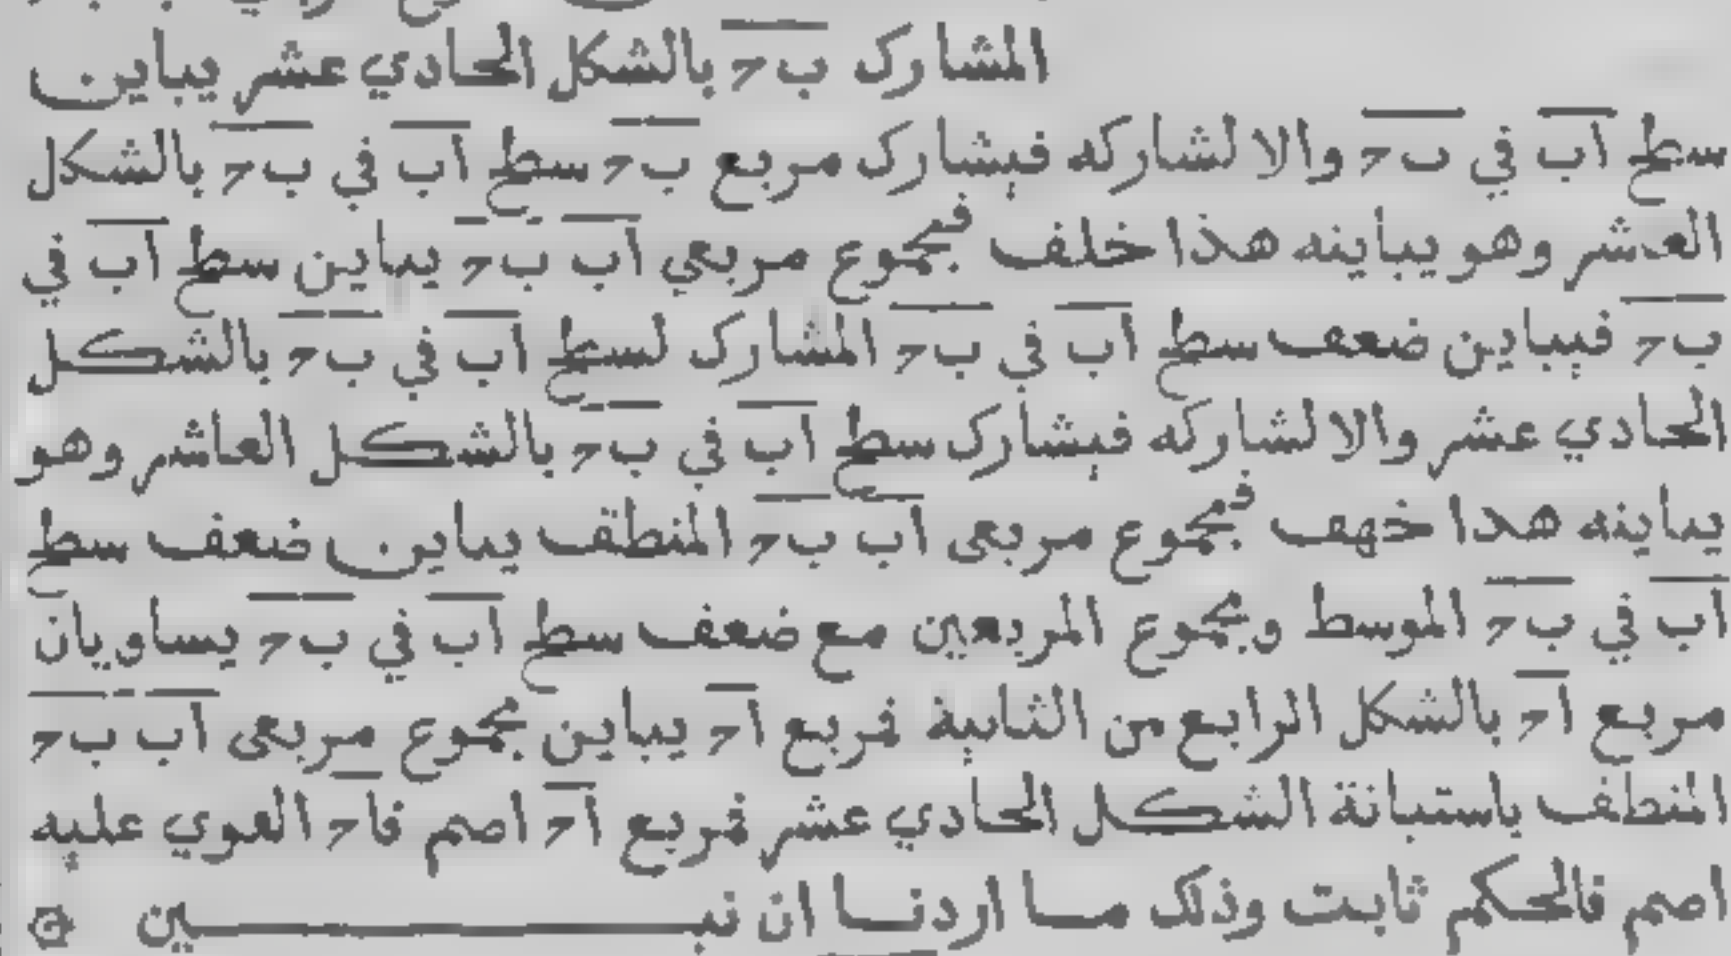 المشارك ب ح بالشكل الحادي عشر يباين
سطح اب في ب ح والا لشاركه فيشارك مربع ب ح سطح اب في ب ح بالشكل
العاشر وهو يباينه هذا خلف فمجموع مربعي اب ب ح يباين سطح اب في
ب ح فيباين ضعف سطح اب في ب ح المشارك لسطح اب في ب ح بالشكل
الحادي عشر والا لشاركه فيشارك سطح اب في ب ح بالشكل العاشر وهو
يباينه هدا خهف فمجموع مربعى اب ب ح المنطق يباين ضعف سطح
اب في ب ح الموسط ومجموع المربعين مع ضعف سطح اب في ب ح يساويان
مربع اح بالشكل الرابع من الثانية فمربع اح يباين مجموع مربعى اب ب ح
المنطف باستبانة الشكل الحادي عشر فمربع اح اصم فاح القوي عليه
اصم فالحكم ثابت وذلك ما اردنا ان نبين